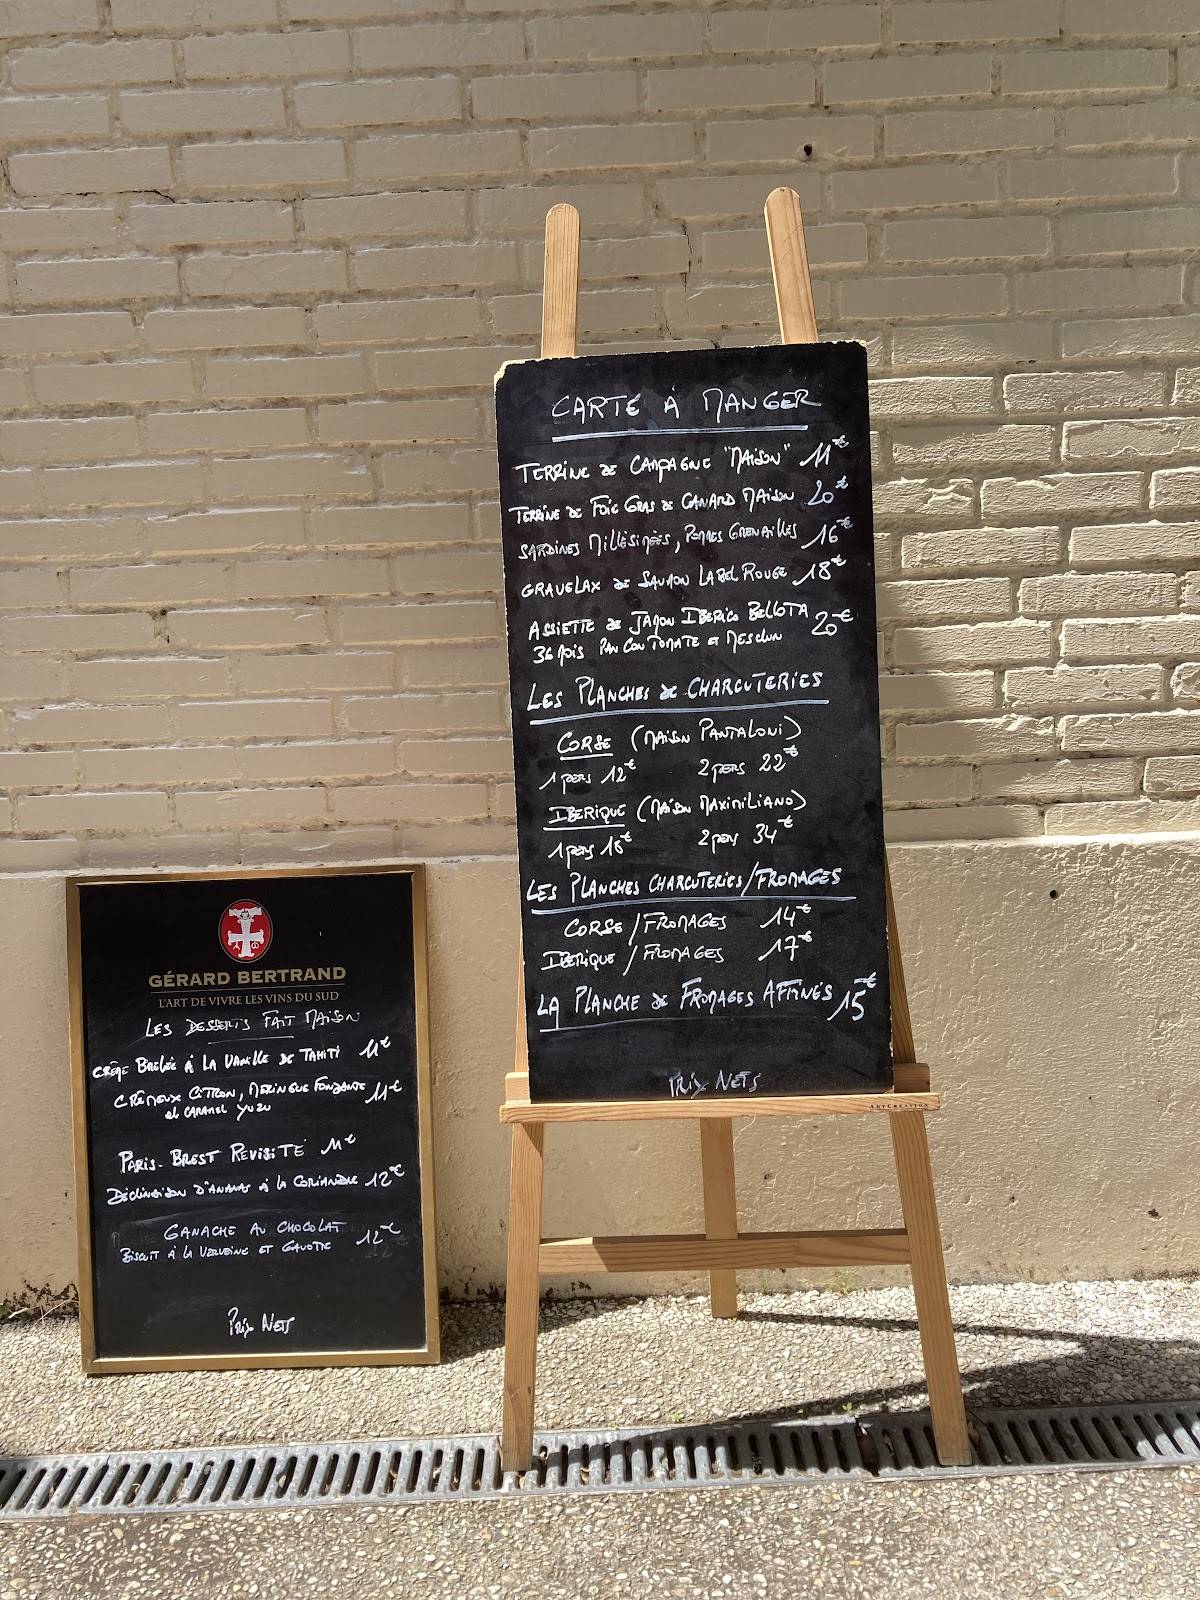 CARTE À MANGER
TERRINE DE CAMPAGNE "MAISON" 11€
TERRINE DE FOIE GRAS DE CANARD MAISON 20€
SARDINES MILLÉSIMÉES, POMMES GRENAILLES 16€
GRAVELAX DE SAUMON LABEL ROUGE 18€
ASSIETTE DE JAMON IBERICO BELLOTA 20€
36 MOIS PAN CON TOMATE ET MESCLUN
LES PLANCHES DE CHARCUTERIES
CORSE (MAISON PANTALONI)
1 pers 12€ 2 pers 22€
IBERIQUE (MAISON MAXIMILIANO)
1 pers 18€ 2 pers 34€
LES PLANCHES CHARCUTERIES/FROMAGES
CORSE/FROMAGES 14€
IBERIQUE/FROMAGES 17€
LA PLANCHE DE FROMAGES AFFINÉS 15€
PRIX NETS
ARTCREATION
GÉRARD BERTRAND
L'ART DE VIVRE LES VINS DU SUD
LES DESSERTS FAIT MAISON
CRÈME BRÛLÉE À LA VANILLE DE TAHITI 11€
CRÉMEUX CITRON, MERINGUE FONDANTE 11€
et CARAMEL YUZU
PARIS-BREST REVISITÉ 11€
DÉCLINAISON D'ANANAS À LA CORIANDRE 12€
GANACHE AU CHOCOLAT 12€
BISCUIT À LA VERVEINE ET GAVOTTE
PRIX NETS